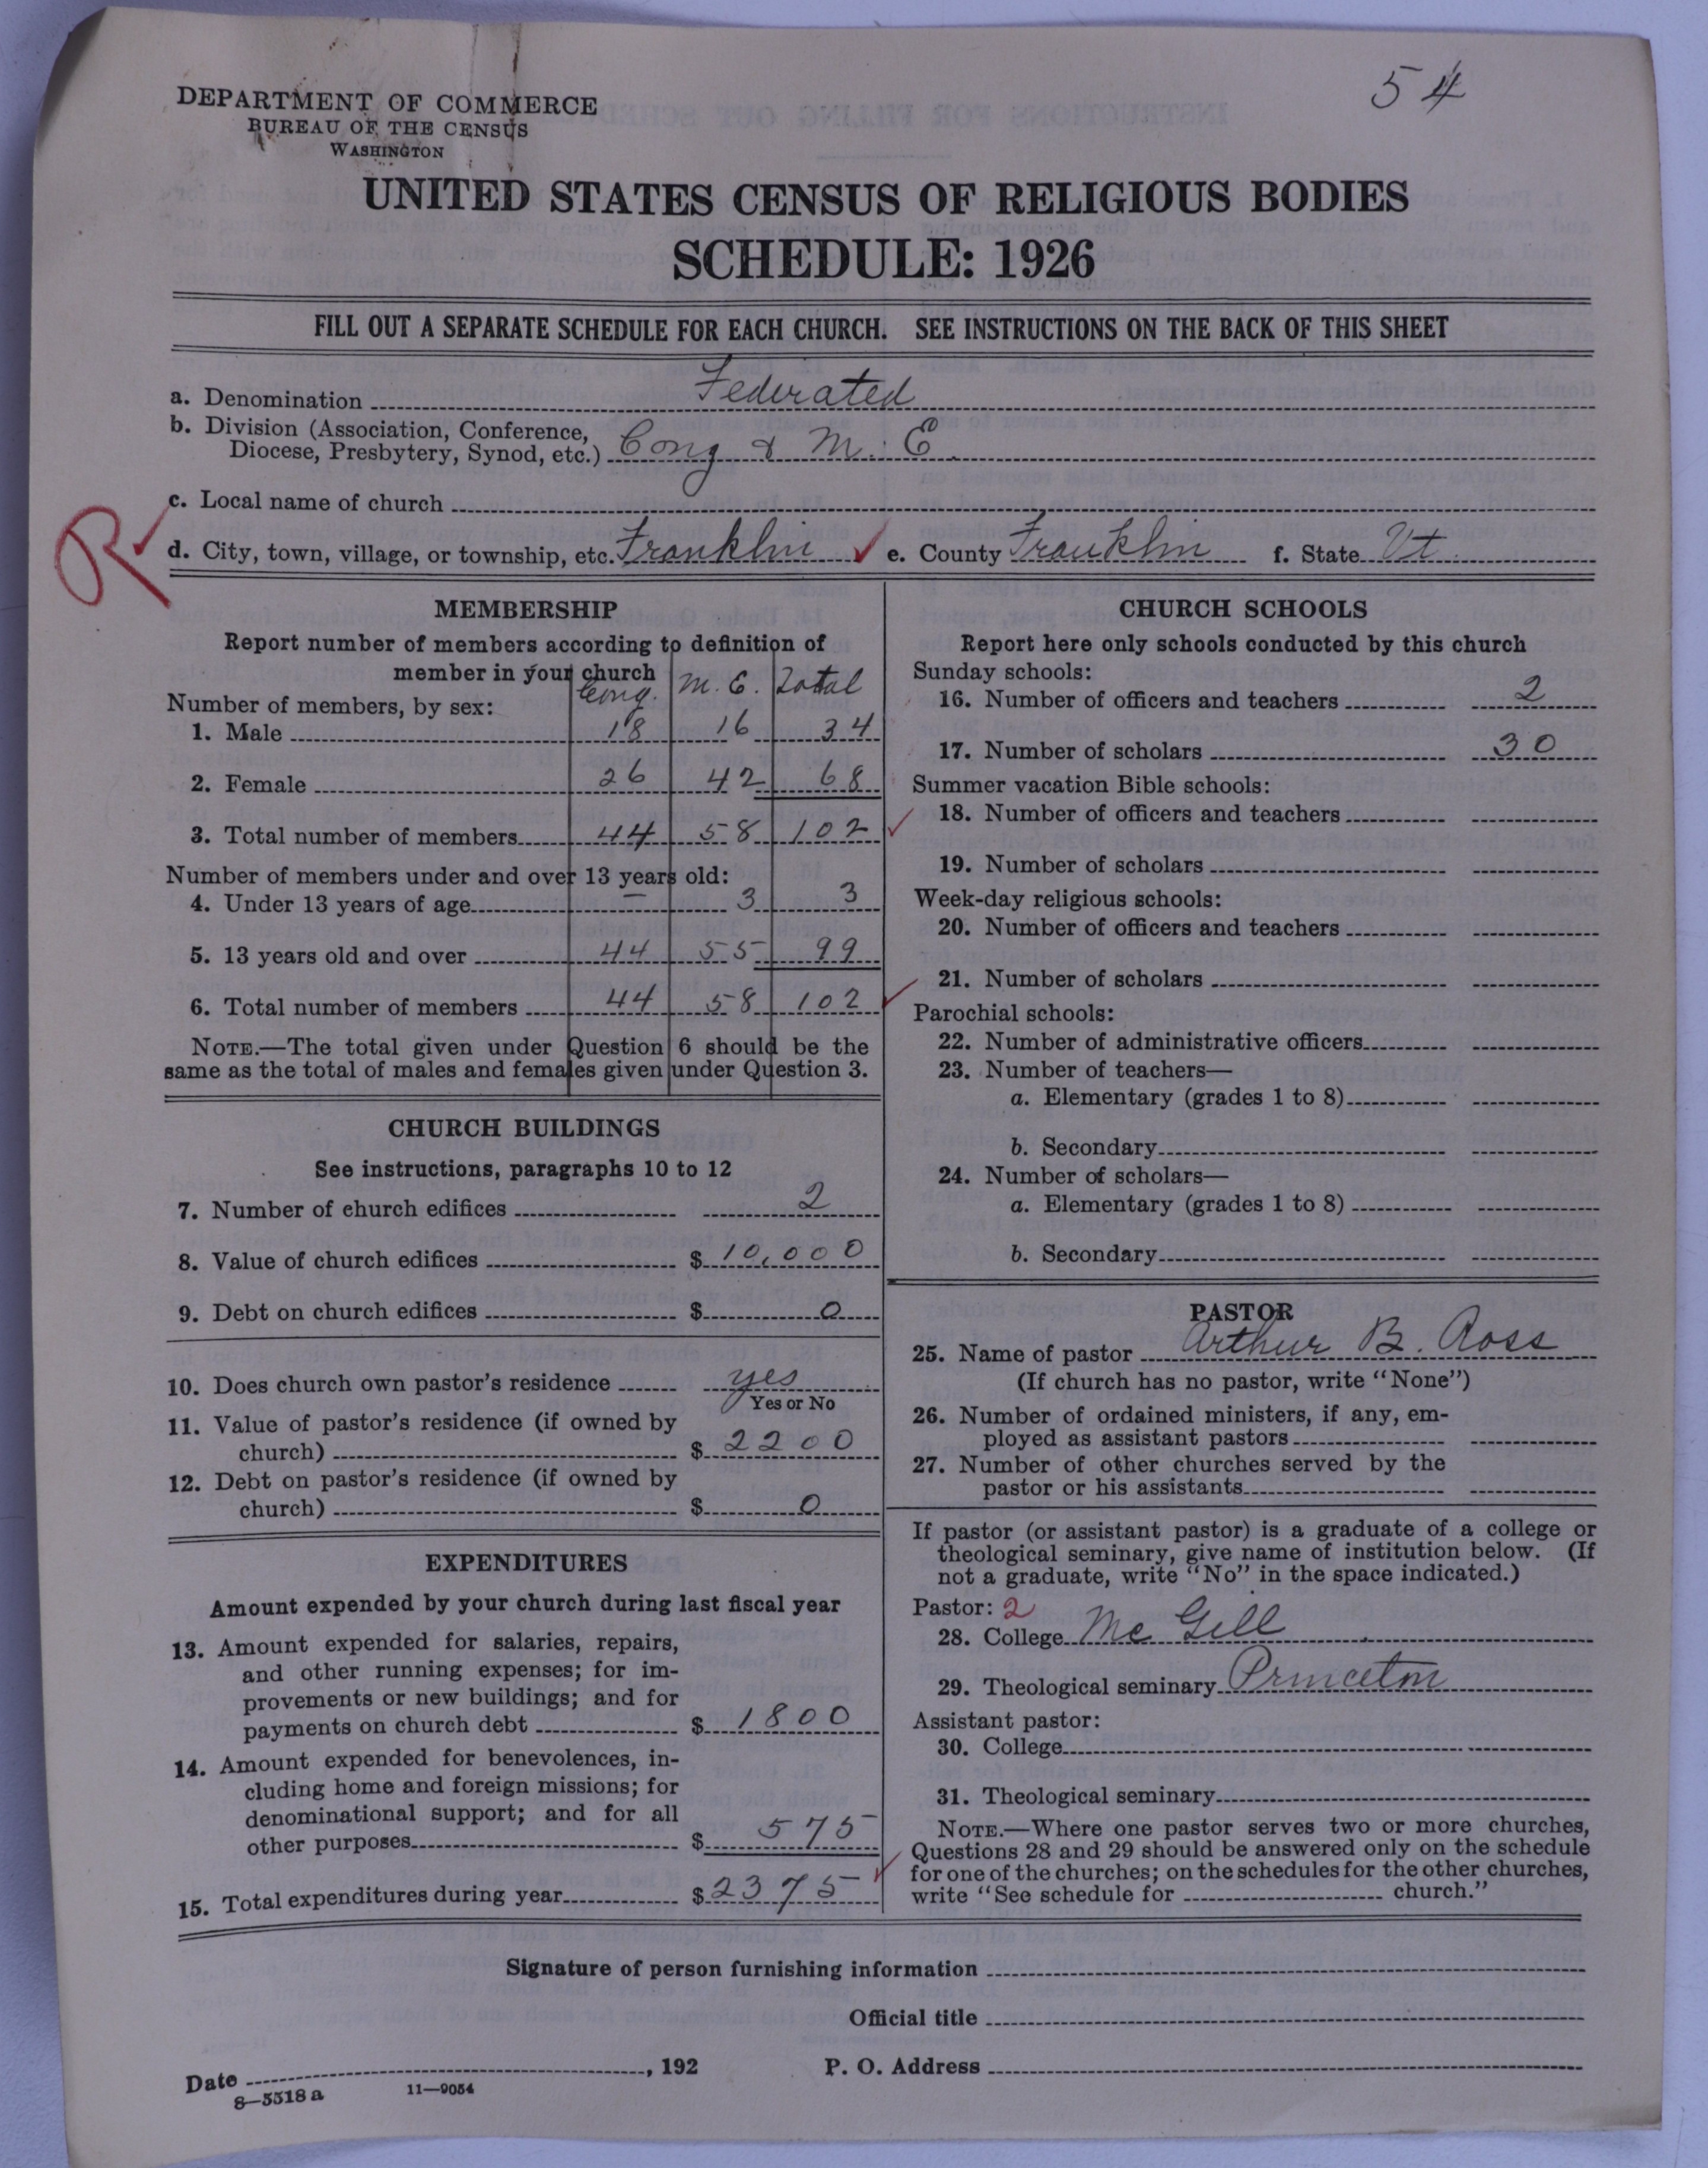 54
DEPARTMENT OF COMMERCE
BUREAU OF THE CENSUS
WASHINGTON
UNITED STATES CENSUS OF RELIGIOUS BODIES
SCHEDULE: 1926
FILL OUT A SEPARATE SCHEDULE FOR EACH CHURCH. SEE INSTRUCTIONS ON THE BACK OF THIS SHEET
a. Denomination Federated
b. Division (Association, Conference,
Diocese, Presbytery, Synod, etc.) Cong & M. E.
c. Local name of church
R
d. City, town, village, or township, etc. Franklin e. County Franklin f. State Vt.
MEMBERSHIP
Report number of members according to definition of
member in your church
Cong. M. E. Total
Number of members, by sex:
1. Male 18 16 34
2. Female 26 42 68
3. Total number of members 44 58 102
Number of members under and over 13 years old:
4. Under 13 years of age — 3 3
5. 13 years old and over 44 55 99
6. Total number of members 44 58 102
NOTE.—The total given under Question 6 should be the
same as the total of males and females given under Question 3.
CHURCH BUILDINGS
See instructions, paragraphs 10 to 12
7. Number of church edifices 2
8. Value of church edifices $ 10,000
9. Debt on church edifices $ 0
10. Does church own pastor's residence yes
Yes or No
11. Value of pastor's residence (if owned by
church) $ 2200
12. Debt on pastor's residence (if owned by
church) $ 0
EXPENDITURES
Amount expended by your church during last fiscal year
13. Amount expended for salaries, repairs,
and other running expenses; for im-
provements or new buildings; and for
payments on church debt $ 1800
14. Amount expended for benevolences, in-
cluding home and foreign missions; for
denominational support; and for all
other purposes $ 575
15. Total expenditures during year $ 2375
CHURCH SCHOOLS
Report here only schools conducted by this church
Sunday schools:
16. Number of officers and teachers 2
17. Number of scholars 30
Summer vacation Bible schools:
18. Number of officers and teachers
19. Number of scholars
Week-day religious schools:
20. Number of officers and teachers
21. Number of scholars
Parochial schools:
22. Number of administrative officers
23. Number of teachers—
a. Elementary (grades 1 to 8)
b. Secondary
24. Number of scholars—
a. Elementary (grades 1 to 8)
b. Secondary
PASTOR
25. Name of pastor Arthur B. Ross
(If church has no pastor, write "None")
26. Number of ordained ministers, if any, em-
ployed as assistant pastors
27. Number of other churches served by the
pastor or his assistants
If pastor (or assistant pastor) is a graduate of a college or
theological seminary, give name of institution below. (If
not a graduate, write "No" in the space indicated.)
Pastor: 2
28. College Mc Gill
29. Theological seminary Princeton
Assistant pastor:
30. College
31. Theological seminary
NOTE.—Where one pastor serves two or more churches,
Questions 28 and 29 should be answered only on the schedule
for one of the churches; on the schedules for the other churches,
write "See schedule for church."
Signature of person furnishing information
Official title
Date , 192 P. O. Address
8—5518 a 11—9054